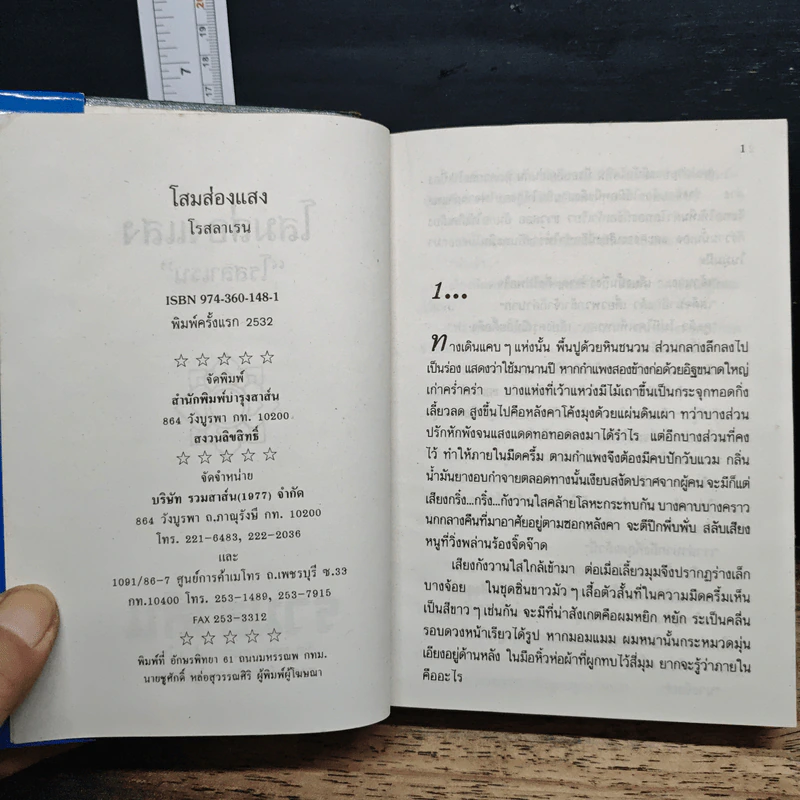 โสมส่องแสง
โรสลาเรน
ISBN 974-360-148-1
พิมพ์ครั้งแรก 2532
☆ ☆ ☆ ☆ ☆
จัดพิมพ์
สำนักพิมพ์บำรุงสาส์น
864 วังบูรพา กท. 10200
สงวนลิขสิทธิ์
☆ ☆ ☆ ☆ ☆
จัดจำหน่าย
บริษัท รวมสาส์น(1977) จำกัด
864 วังบูรพา ถ.ภาณุรังษี กท. 10200
โทร. 221-6483, 222-2036
และ
1091/86-7 ศูนย์การค้าเมโทร ถ.เพชรบุรี ซ.33
กท.10400 โทร. 253-1489, 253-7915
FAX 253-3312
☆ ☆ ☆ ☆ ☆
พิมพ์ที่ อักษรพิทยา 61 ถนนมหรรณพ กทม.
นายชูศักดิ์ หล่อสุวรรณศิริ ผู้พิมพ์ผู้โฆษณา
1
1...
ทางเดินแคบ ๆ แห่งนั้น พื้นปูด้วยหินชนวน ส่วนกลางลึกลงไป
เป็นร่อง แสดงว่าใช้มานานปี หากกำแพงสองข้างก่อด้วยอิฐขนาดใหญ่
เก่าคร่ำคร่า บางแห่งที่เว้าแหว่งมีไม้เถาขึ้นเป็นกระจุกทอดกิ่ง
เลี้ยวลด สูงขึ้นไปคือหลังคาโค้งมุงด้วยแผ่นดินเผา ทว่าบางส่วน
ปรักหักพังจนแสงแดดทอทอดลงมาได้รำไร แต่อีกบางส่วนที่คง
ไว้ ทำให้ภายในมืดครึ้ม ตามกำแพงจึงต้องมีคบปักวับแวม กลิ่น
น้ำมันยางอบกำจายตลอดทางนั้นเงียบสงัดปราศจากผู้คน จะมีก็แต่
เสียงกริ่ง...กริ่ง...กังวานใสคล้ายโลหะกระทบกัน บางคาบบางคราว
นกกลางคืนที่มาอาศัยอยู่ตามซอกหลังคา จะตีปีกพึ่บพั่บ สลับเสียง
หนูที่วิ่งพล่านร้องจิ๊ดจ๊าด
เสียงกังวานใสใกล้เข้ามา ต่อเมื่อเลี้ยวมุมจึงปรากฏร่างเล็ก
บางจ้อย ในชุดซิ่นขาวมัว ๆ เสื้อตัวสั้นที่ในความมืดครึ้มเห็น
เป็นสีขาว ๆ เช่นกัน จะมีที่น่าสังเกตคือผมหยิก หยัก ระเป็นคลื่น
รอบดวงหน้าเรียวได้รูป หากมอมแมม ผมหนานั้นกระหมวดมุ่น
เอียงอยู่ด้านหลัง ในมือหิ้วห่อผ้าที่ผูกทบไว้สี่มุม ยากจะรู้ว่าภายใน
คืออะไร
7
17
18
19
20